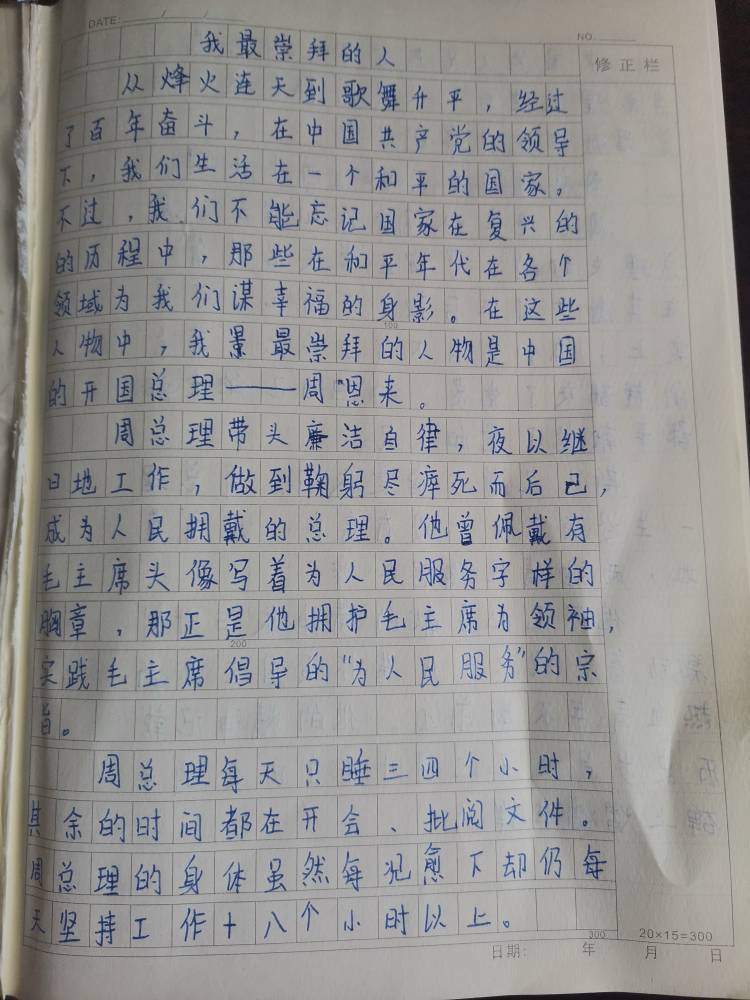 DATE: / /
NO.
修正栏
我最崇拜的人
从烽火连天到歌舞升平，经过
了百年奋斗，在中国共产党的领导
下，我们生活在一个和平的国家。
不过，我们不能忘记国家在复兴的
的历程中，那些在和平年代在各个
领域为我们谋幸福的身影。在这些
100
人物中，我景最崇拜的人物是中国
的开国总理——周恩来。
周总理带头廉洁自律，夜以继
日地工作，做到鞠躬尽瘁死而后已，
成为人民拥戴的总理。他曾佩戴有
毛主席头像写着为人民服务字样的
胸章，那正是他拥护毛主席为领袖，
200
实践毛主席倡导的“为人民服务”的宗
旨。
周总理每天只睡三四个小时，
其余的时间都在开会、批阅文件。
周总理的身体虽然每况愈下却仍每
天坚持工作十八个小时以上。
300
20×15=300
日期: 年 月 日